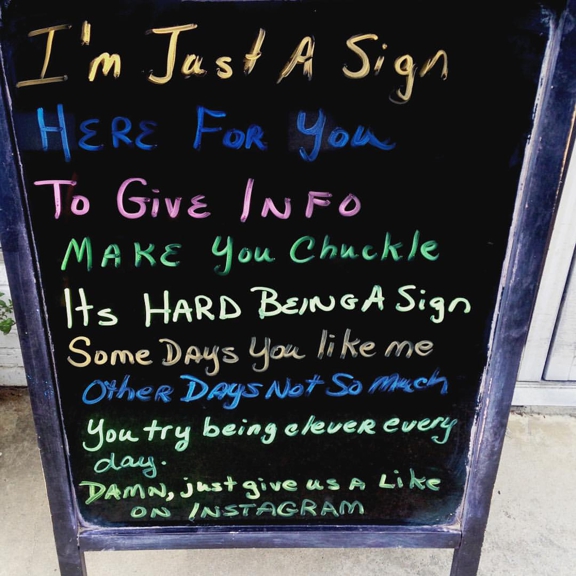 I'm Just A Sign
HERE FOR You
To GIVE INFO
MAKE You Chuckle
Its HARD BEING A Sign
Some DAYS You like me
Other DAYS Not So Much
You try being clever every
day.
DAMN, just give us A Like
ON INSTAGRAM